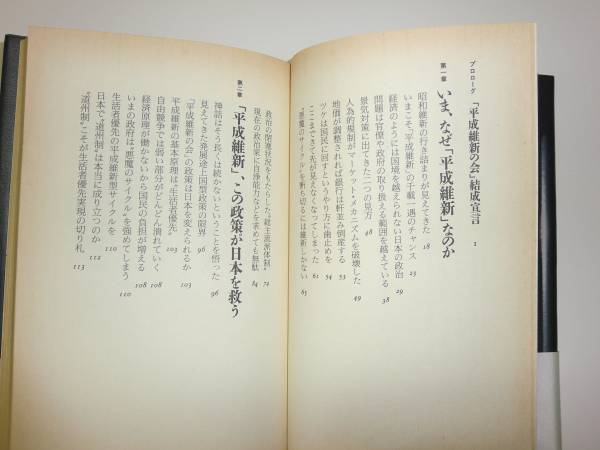 プロローグ 「平成維新の会」結成宣言 1
第一章 いま、なぜ「平成維新」なのか
昭和維新の行き詰まりが見えてきた 18
いまこそ「平成維新」の千載一遇のチャンス 23
経済のようには国境を越えられない日本の政治 29
問題は官僚や政府の取り扱える範囲を越えている 38
景気対策に出てきた二つの見方 48
人為的規制がマーケット・メカニズムを破壊した 49
地価が調整されれば銀行は軒並み倒産する 53
ツケは国民に回すというやり方に歯止めを 54
ここまできて先が見えなくなってしまった 61
“悪魔のサイクル”を断ち切るには維新しかない 65
政治の閉塞状況をもたらした“総主流派体制” 74
現在の政治家に自浄能力などを求めても無駄 84
第二章 「平成維新」、この政策が日本を救う
神話はそう長くは続かないということを悟った 96
見えてきた発展途上国型政策の限界 96
「平成維新の会」の政策は日本を変えられるか 103
平成維新の基本原理は“生活者優先” 103
自由競争では弱い部分がどんどん潰れていく 108
経済原理が働かないから国民の負担が増える 108
いまの政府は“悪魔のサイクル”を強めてしまう 110
生活者優先の平成維新型サイクルを 110
日本で“道州制”は本当に成り立つのか 112
“道州制”こそが生活者優先実現の切り札 113